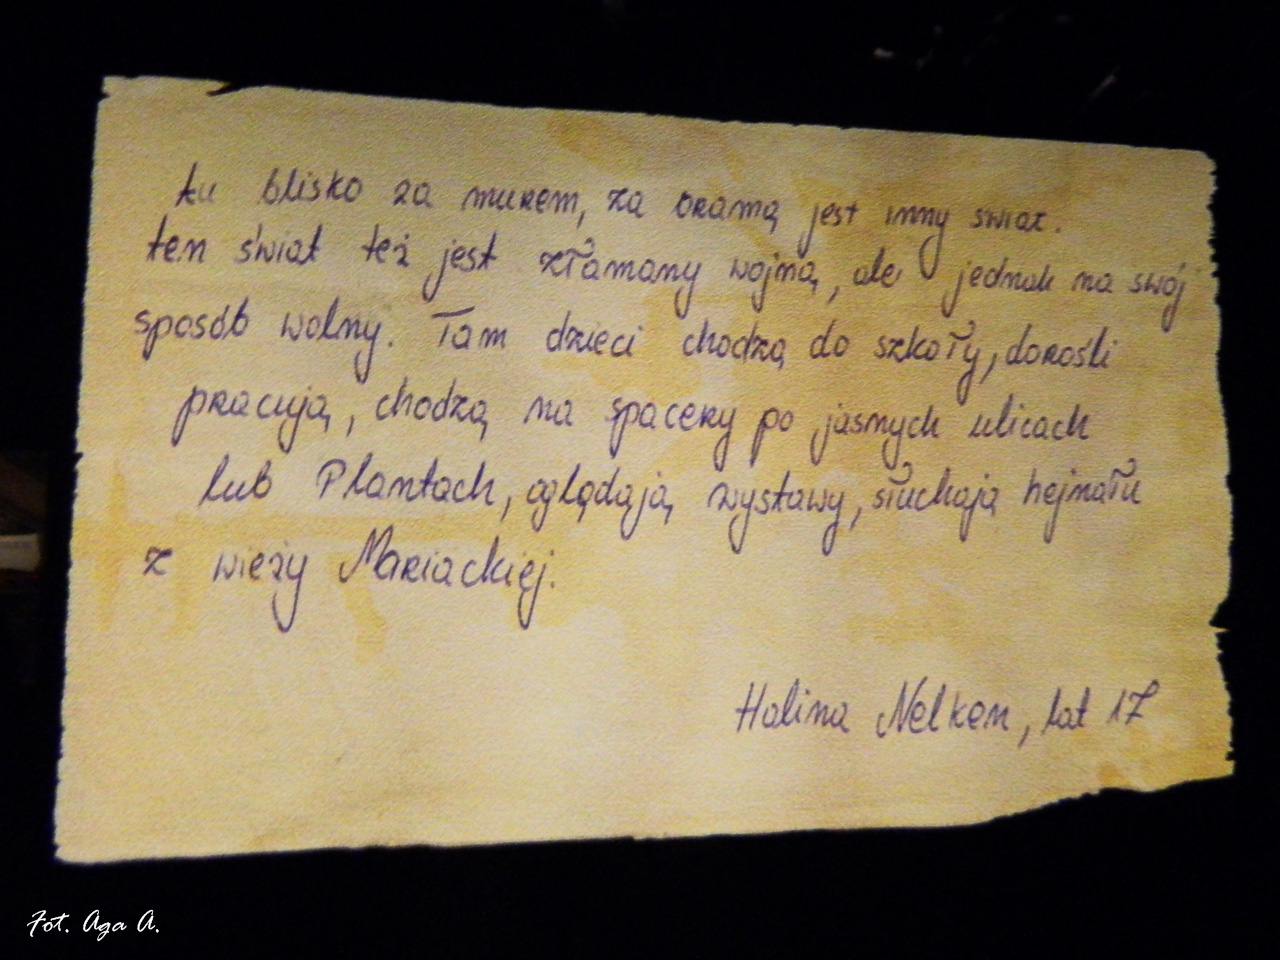 tu blisko za murem, za bramą jest inny świat.
ten świat też jest złamany wojną, ale jednak na swój
sposób wolny. Tam dzieci chodzą do szkoły, dorośli
pracują, chodzą na spacery po jasnych ulicach
lub Plantach, oglądają wystawy, słuchają hejnału
z wieży Mariackiej.
Halina Nelken, lat 17
Fot. Aga A.